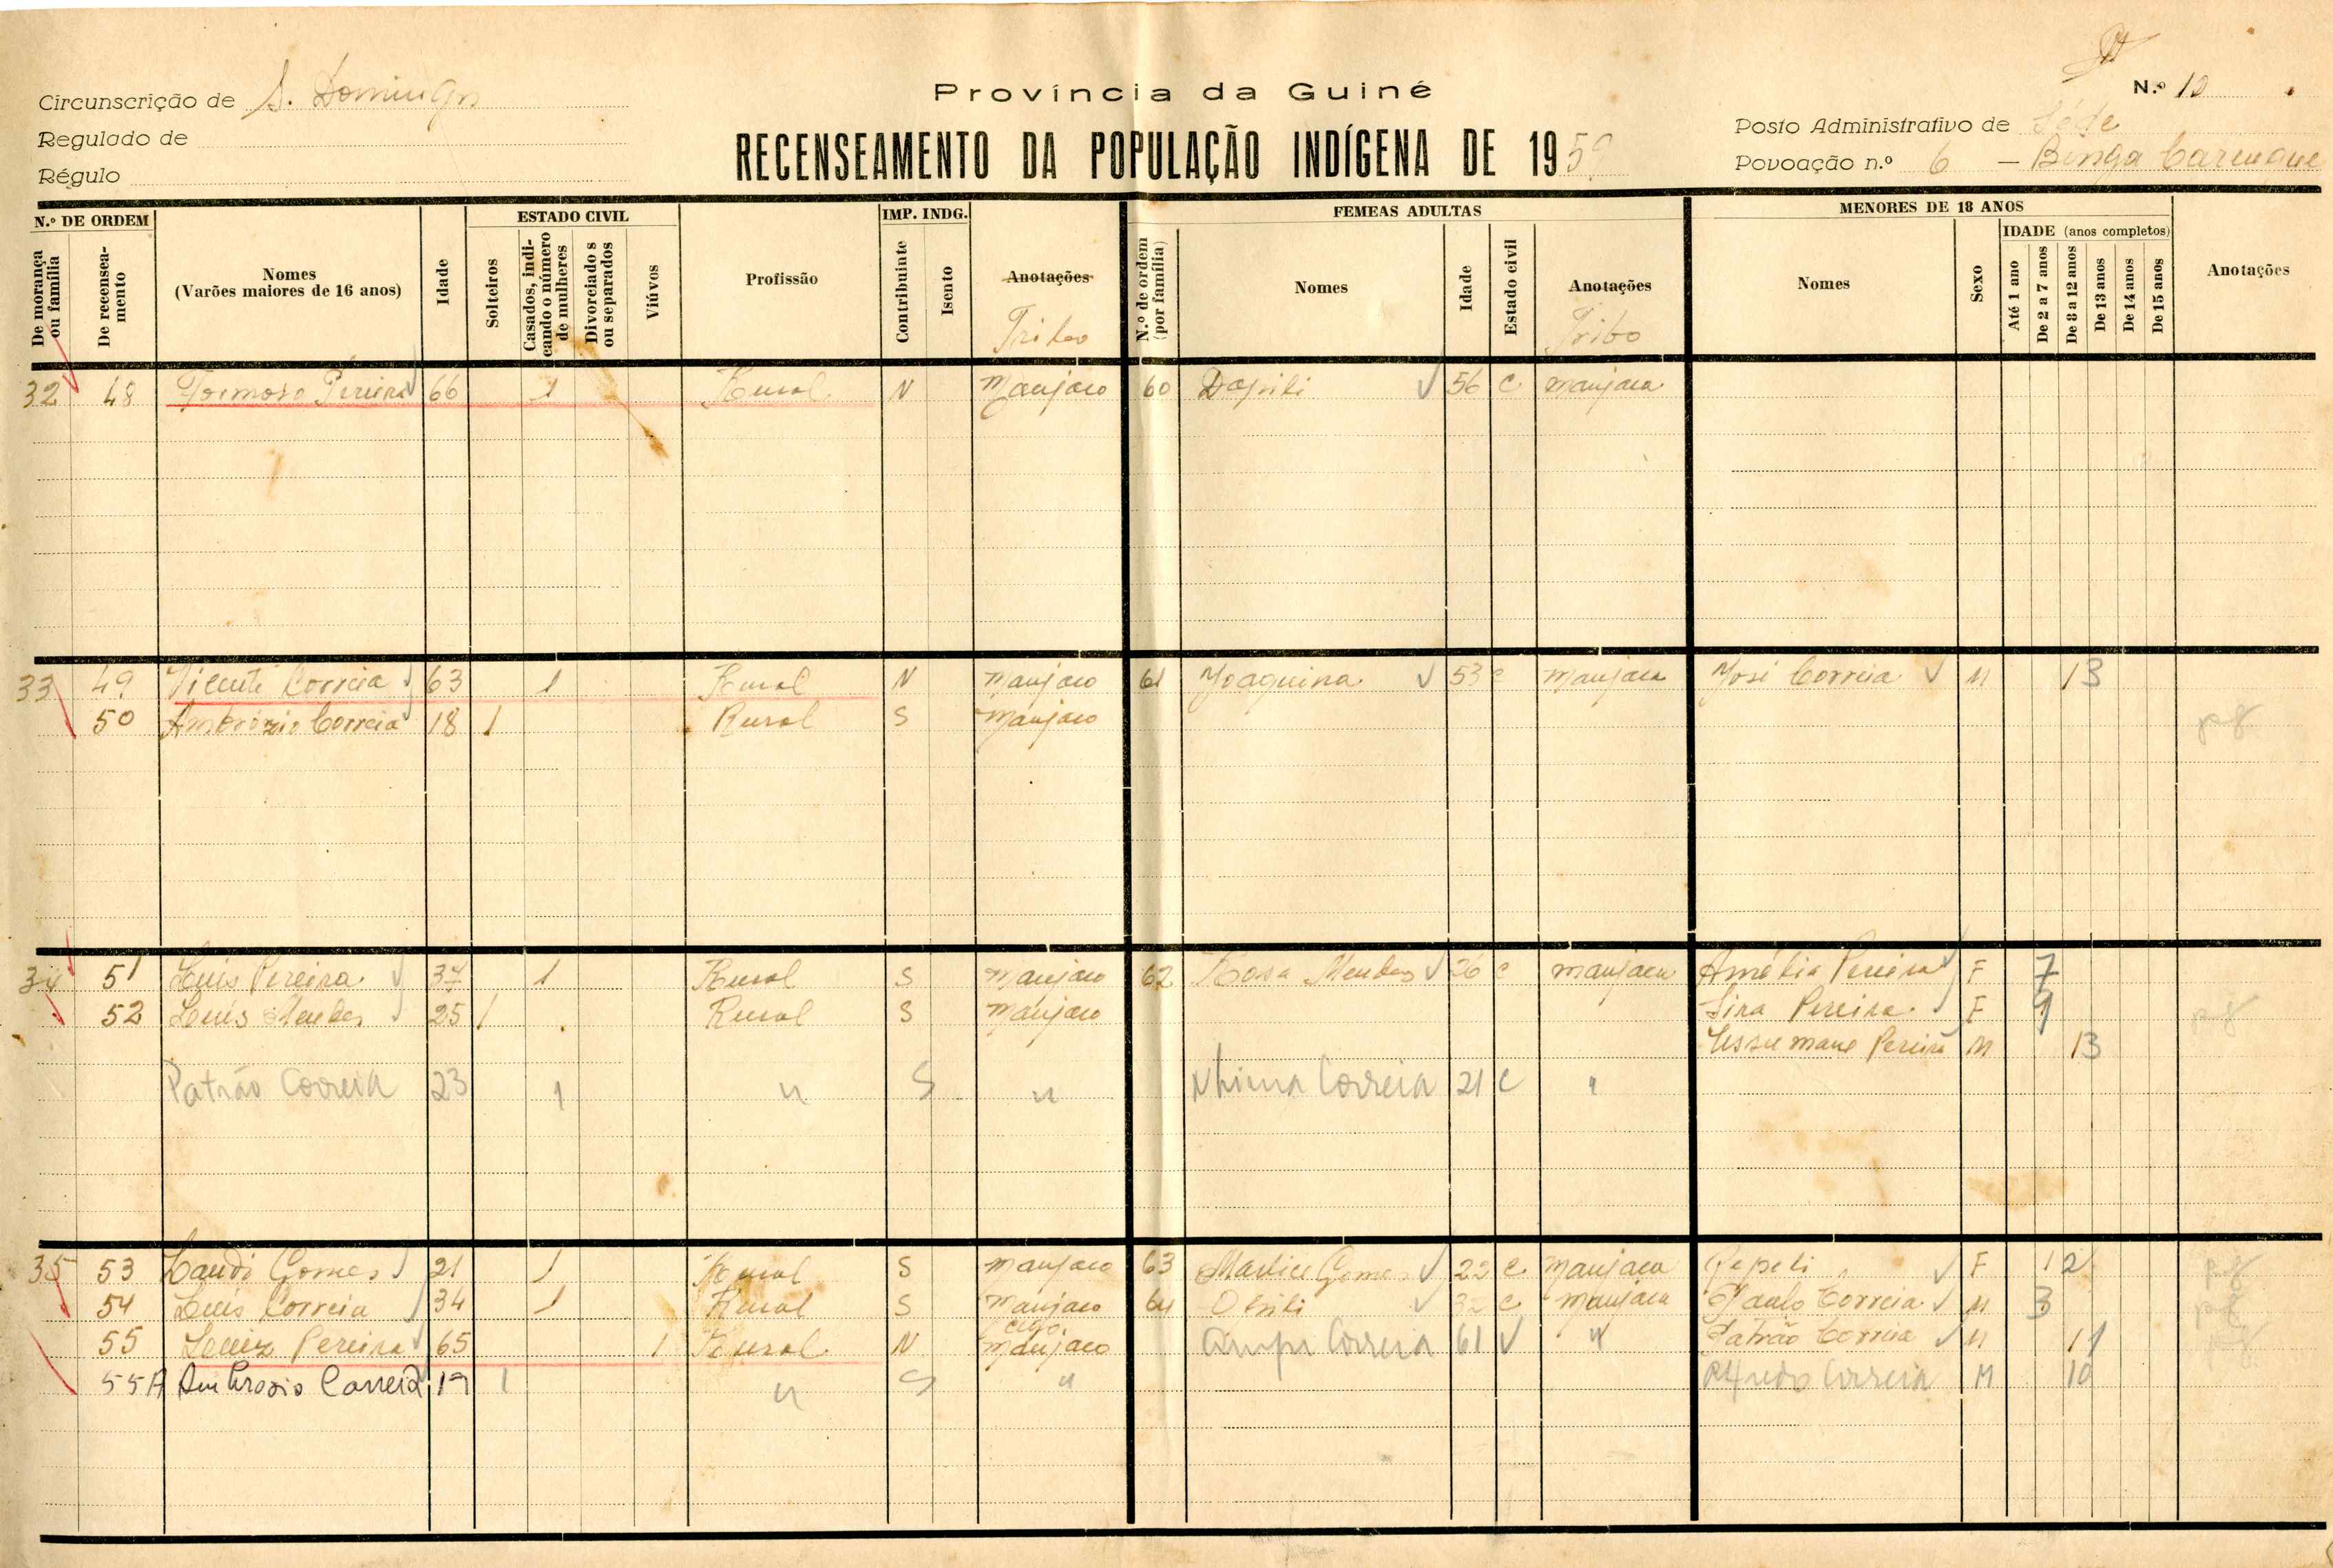 Circunscrição de S. Domingos
Regulado de
Régulo
Província da Guiné
RECENSEAMENTO DA POPULAÇÃO INDÍGENA DE 1959
N.º 10
Posto Administrativo de Séde
Povoação n.º 6 – Binga Carenque
N.º DE ORDEM
De morança ou família
De recenseamento
Nomes
(Varões maiores de 16 anos)
Idade
ESTADO CIVIL
Solteiros
Casados, indicando o número de mulheres
Divorciados ou separados
Viúvos
Profissão
IMP. INDG.
Contribuinte
Isento
Anotações
Tribo
FEMEAS ADULTAS
N.º de ordem (por família)
Nomes
Idade
Estado civil
Anotações
Tribo
MENORES DE 18 ANOS
Nomes
Sexo
IDADE (anos completos)
Até 1 ano
De 2 a 7 anos
De 8 a 12 anos
De 13 anos
De 14 anos
De 15 anos
Anotações
32 48 Formoso Pereira 66 1 Rural N Manjaco 60 Dapili 56 C manjaca
33 49 Vicente Correia 63 1 Rural N Manjaco 61 Joaquina 53 C manjaca José Correia M 13
50 Ambrózio Correia 18 1 Rural S Manjaco pg
34 51 Luís Pereira 37 1 Rural S Manjaco 62 Rosa Mendes 26 C manjaca Amélia Pereira F 7
52 Luís Mendes 25 1 Rural S Manjaco Sira Pereira F pg
Ussumane Pereira M 13
Patrão Correia 23 1 " S " Nhima Correia 21 C "
35 53 Laudi Gomes 21 1 Rural S manjaco 63 Martice Gomes 22 C manjaca Pepeli F 12 pg
54 Luís Correia 34 1 Rural S Manjaco 64 32 C manjaca Paulo Correia M 3 pg
55 Luiz Pereira 65 1 Rural N cego manjaco Correia 61 V " Patrão Correia M 11
55A Ambrosio Correia 19 1 " S " Alfredo Correia M 10